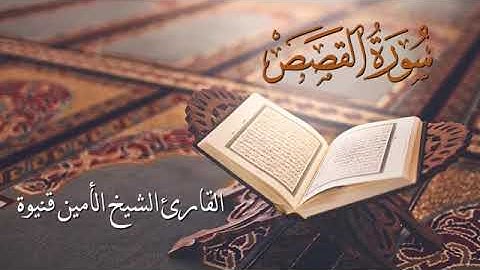 سُورَةُ القَصَصِ
القارئ الشيخ الأمين قنيوة